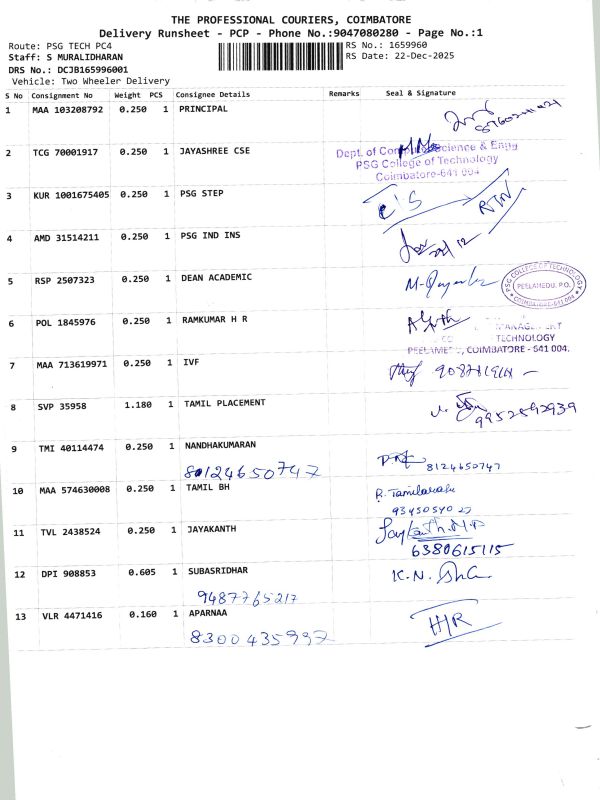 THE PROFESSIONAL COURIERS, COIMBATORE
Delivery Runsheet - PCP - Phone No.:9047080280 - Page No.:1
Route: PSG TECH PC4
RS No.: 1659960
Staff: S MURALIDHARAN
RS Date: 22-Dec-2025
DRS No.: DCJB165996001
Vehicle: Two Wheeler Delivery
S No Consignment No Weight PCS Consignee Details Remarks Seal & Signature
1 MAA 103208792 0.250 1 PRINCIPAL
2 TCG 70001917 0.250 1 JAYASHREE CSE
Dept. of Computer Science & Engg
PSG College of Technology
Coimbatore-641 004
3 KUR 1001675405 0.250 1 PSG STEP
C/S RTN
4 AMD 31514211 0.250 1 PSG IND INS
5 RSP 2507323 0.250 1 DEAN ACADEMIC
PSG COLLEGE OF TECHNOLOGY
PEELAMEDU. P.O.
COIMBATORE-641 004
6 POL 1845976 0.250 1 RAMKUMAR H R
TECHNOLOGY
COIMBATORE - 641 004.
7 MAA 713619971 0.250 1 IVF
8 SVP 35958 1.180 1 TAMIL PLACEMENT
9952592939
9 TMI 40114474 0.250 1 NANDHAKUMARAN
8124650747
8124650747
10 MAA 574630008 0.250 1 TAMIL BH
11 TVL 2438524 0.250 1 JAYAKANTH
Jaykanth.M.P
6380615115
12 DPI 908853 0.605 1 SUBASRIDHAR
K.N.
9487765217
13 VLR 4471416 0.160 1 APARNAA
H/R
8300435997